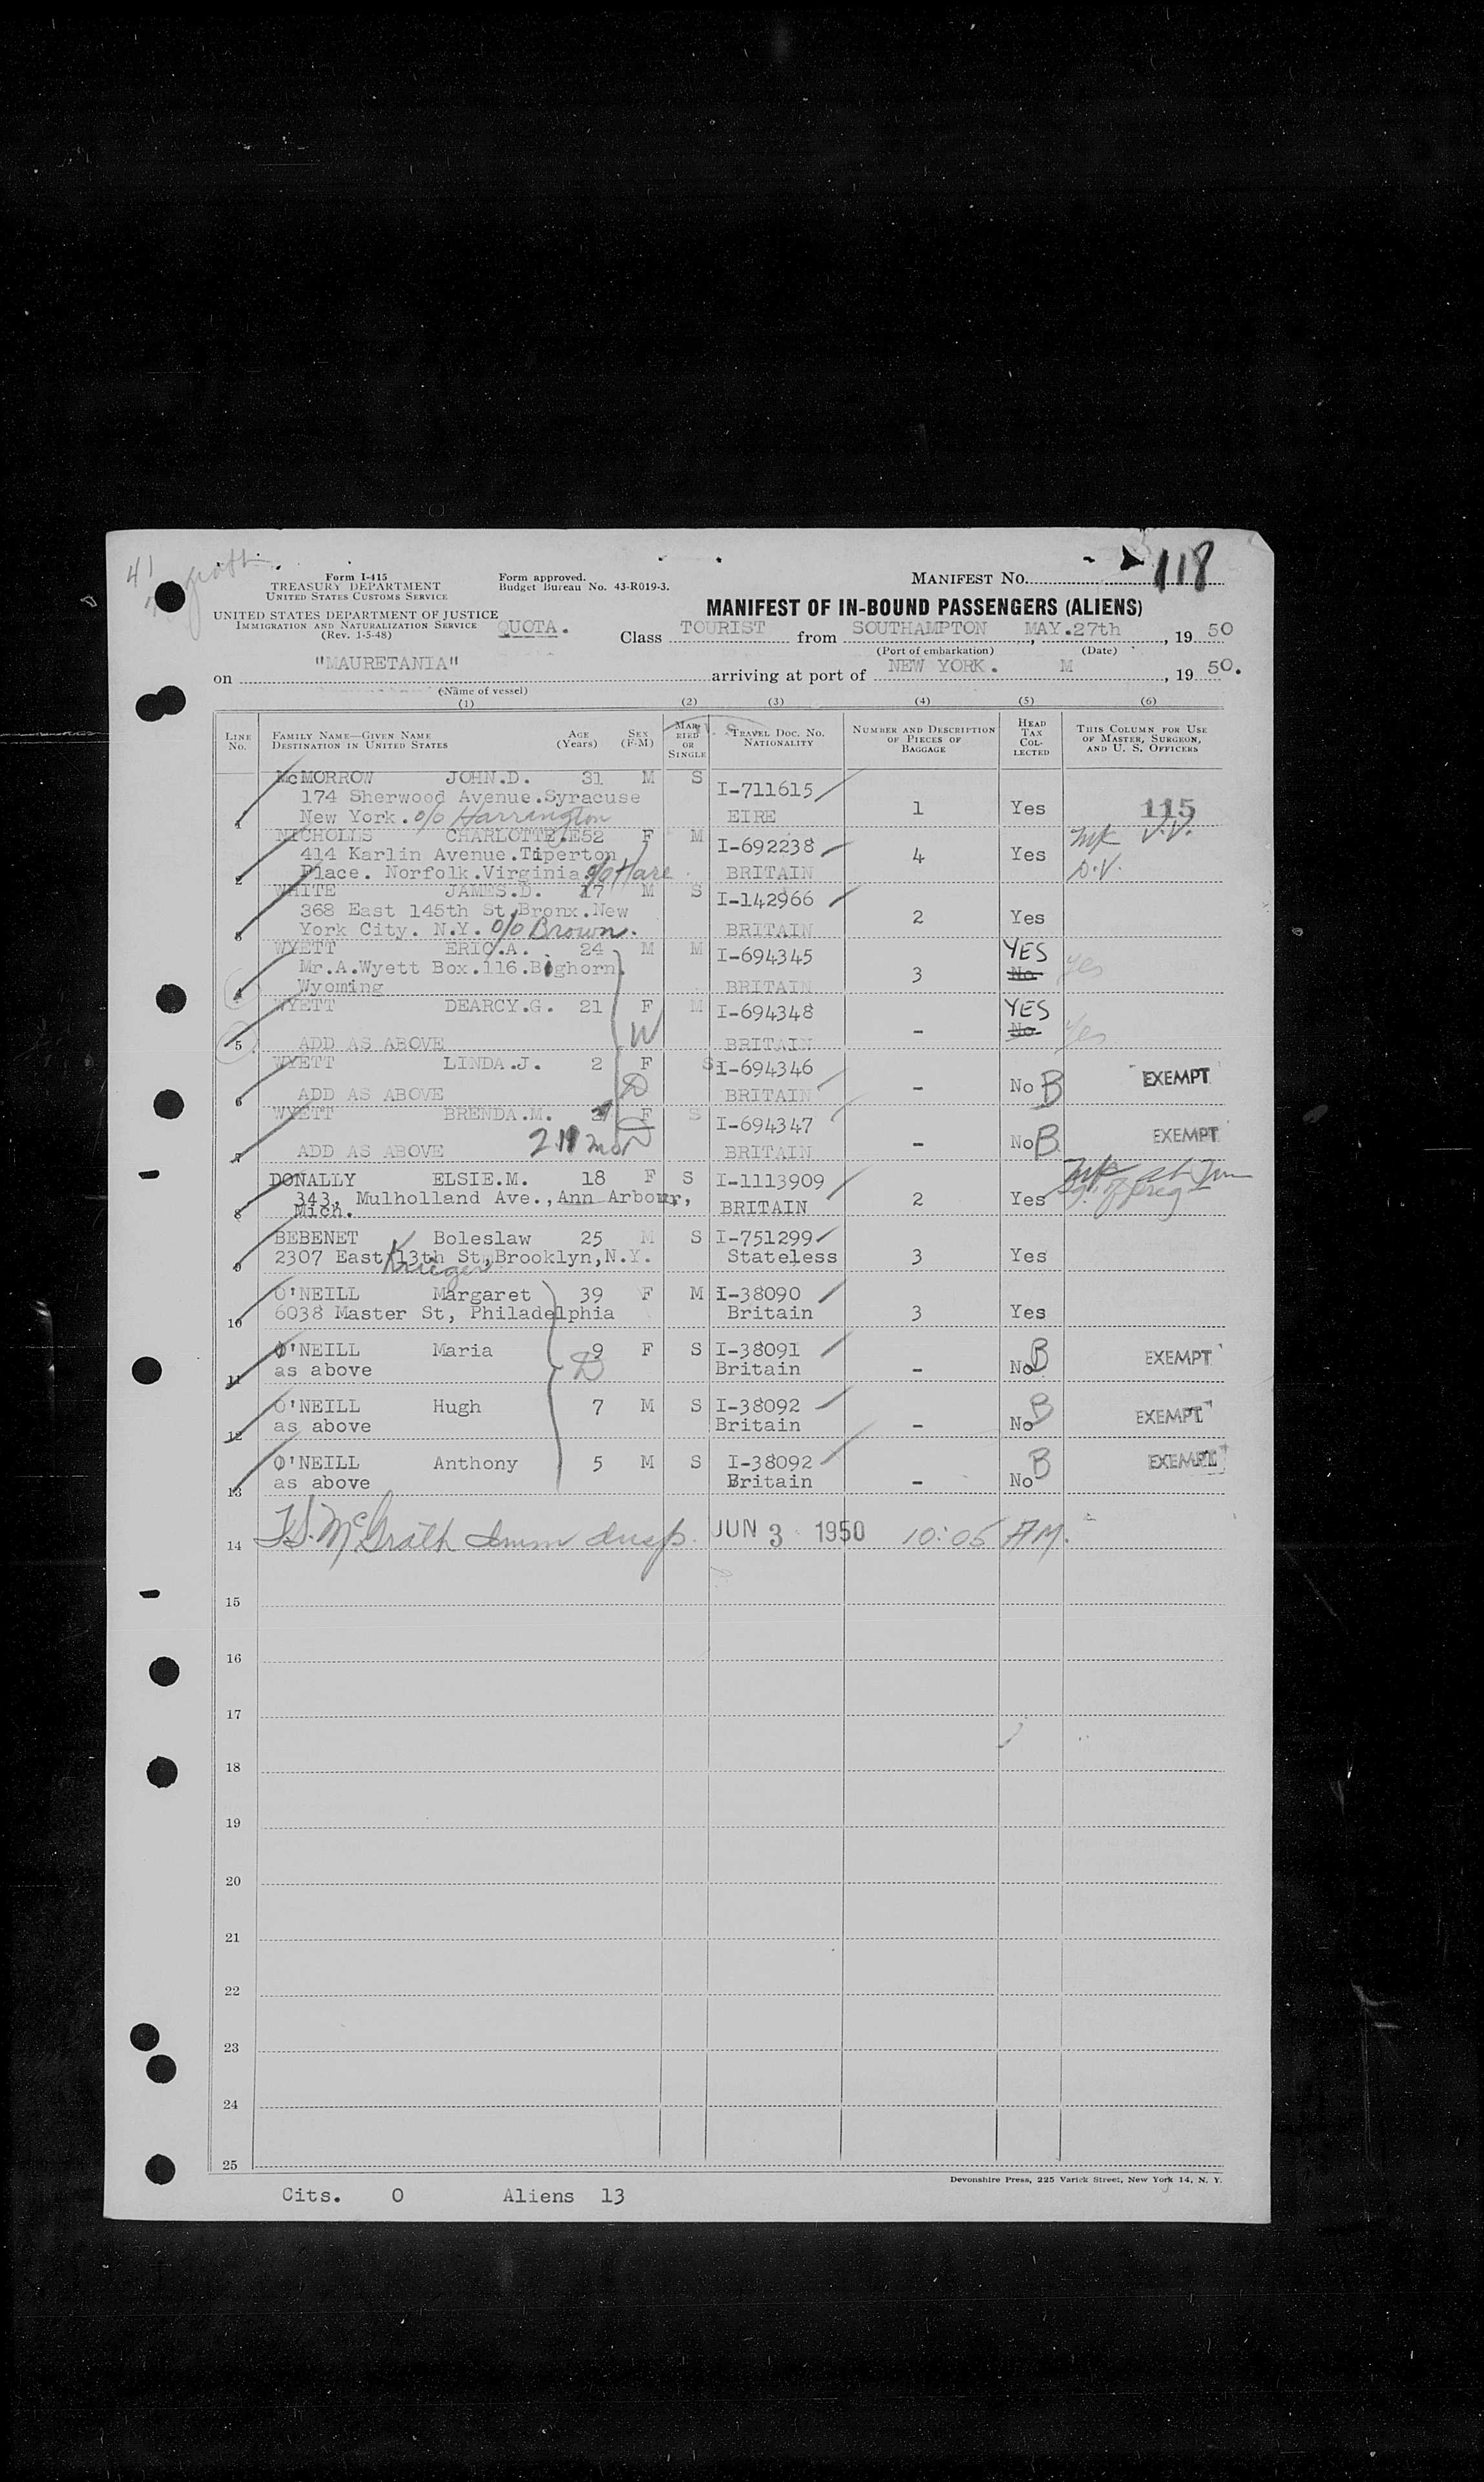 118
Form I-415
TREASURY DEPARTMENT
UNITED STATES CUSTOMS SERVICE
Form approved.
Budget Bureau No. 43-R019-3.
MANIFEST No.
UNITED STATES DEPARTMENT OF JUSTICE
IMMIGRATION AND NATURALIZATION SERVICE
(Rev. 1-5-48)
QUOTA.
MANIFEST OF IN-BOUND PASSENGERS (ALIENS)
Class TOURIST from SOUTHAMPTON, MAY.27th, 19 50
(Port of embarkation) (Date)
on "MAURETANIA" arriving at port of NEW YORK. M, 19 50.
(Name of vessel)
(1) (2) (3) (4) (5) (6)
LINE No. FAMILY NAME—GIVEN NAME DESTINATION IN UNITED STATES AGE (Years) SEX (F-M) MARRIED OR SINGLE TRAVEL DOC. NO. NATIONALITY NUMBER AND DESCRIPTION OF PIECES OF BAGGAGE HEAD TAX COLLECTED THIS COLUMN FOR USE OF MASTER, SURGEON, AND U. S. OFFICERS
1 McMORROW JOHN.D. 31 M S I-711615
174 Sherwood Avenue.Syracuse 1 Yes 115
New York. c/o Harrington EIRE
2 NICHOLLS CHARLOTTE.E52 F M I-692238
414 Karlin Avenue.Tiperton 4 Yes
Place. Norfolk.Virginia. c/o Hare BRITAIN
3 WHITE JAMES.D. 17 M S I-142966
368 East 145th St,Bronx.New 2 Yes
York City. N.Y. c/o Brown. BRITAIN
4 WYETT ERIC.A. 24 M M I-694345 YES
Mr.A.Wyett Box.116.Bighorn. 3 No yes
Wyoming BRITAIN
5 WYETT DEARCY.G. 21 F M I-694348 YES
W - No yes
ADD AS ABOVE BRITAIN
6 WYETT LINDA.J. 2 F S I-694346
D - No B EXEMPT
ADD AS ABOVE BRITAIN
7 WYETT BRENDA.M. F S I-694347
11 mos D - No B EXEMPT
ADD AS ABOVE BRITAIN
8 DONALLY ELSIE.M. 18 F S I-1113909
343, Mulholland Ave.,Ann Arbour, 2 Yes
Mich. BRITAIN
9 BEBENET Boleslaw 25 M S I-751299
2307 East 13th St,Brooklyn,N.Y. Stateless 3 Yes
Krieger
10 O'NEILL Margaret 39 F M I-38090
6038 Master St, Philadelphia Britain 3 Yes
11 O'NEILL Maria 9 F S I-38091
as above D Britain - No B EXEMPT
12 O'NEILL Hugh 7 M S I-38092
as above Britain - No B EXEMPT
13 O'NEILL Anthony 5 M S I-38092
as above Britain - No B EXEMPT
14 McGrath Imm Insp. JUN 3 1950 10:05 AM.
15
16
17
18
19
20
21
22
23
24
25
Devonshire Press, 225 Varick Street, New York 14, N. Y.
Cits. 0 Aliens 13